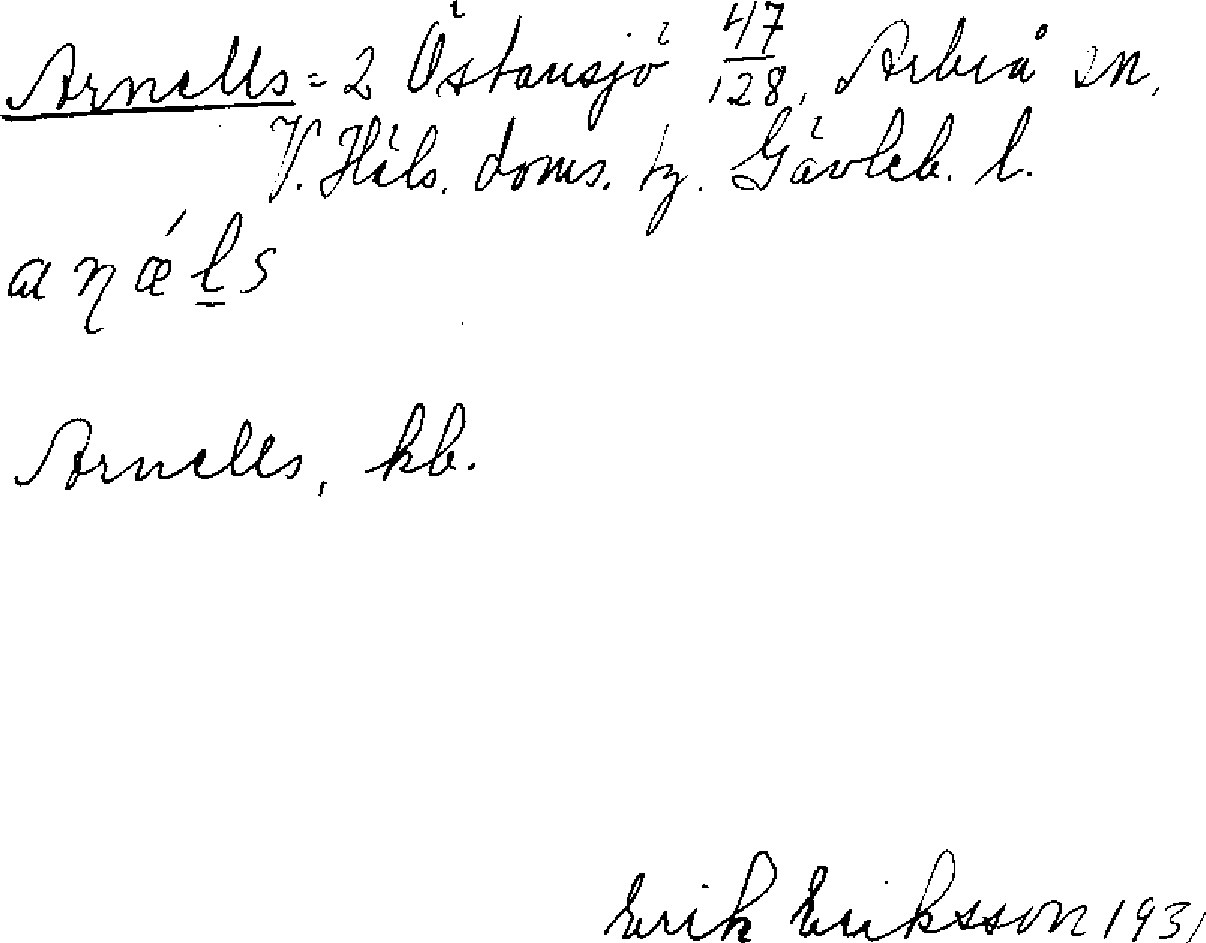 Arnells = 2 Östansjö 47/128, Arbrå sn,
V. Häls. doms. tg. Gävleb. l.
aηǽl̲s
Arnells, kb.
Erik Eriksson 1931